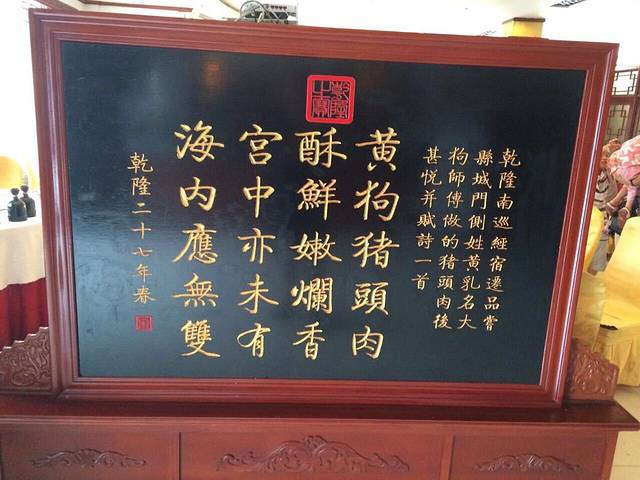 乾隆南巡經宿遷品嘗
縣城門側姓黃乳名大
狗師傅做的猪頭肉後
甚悅并賦詩一首
黃狗猪頭肉
酥鮮嫩爛香
宮中亦未有
海内應無雙
乾隆二十七年春